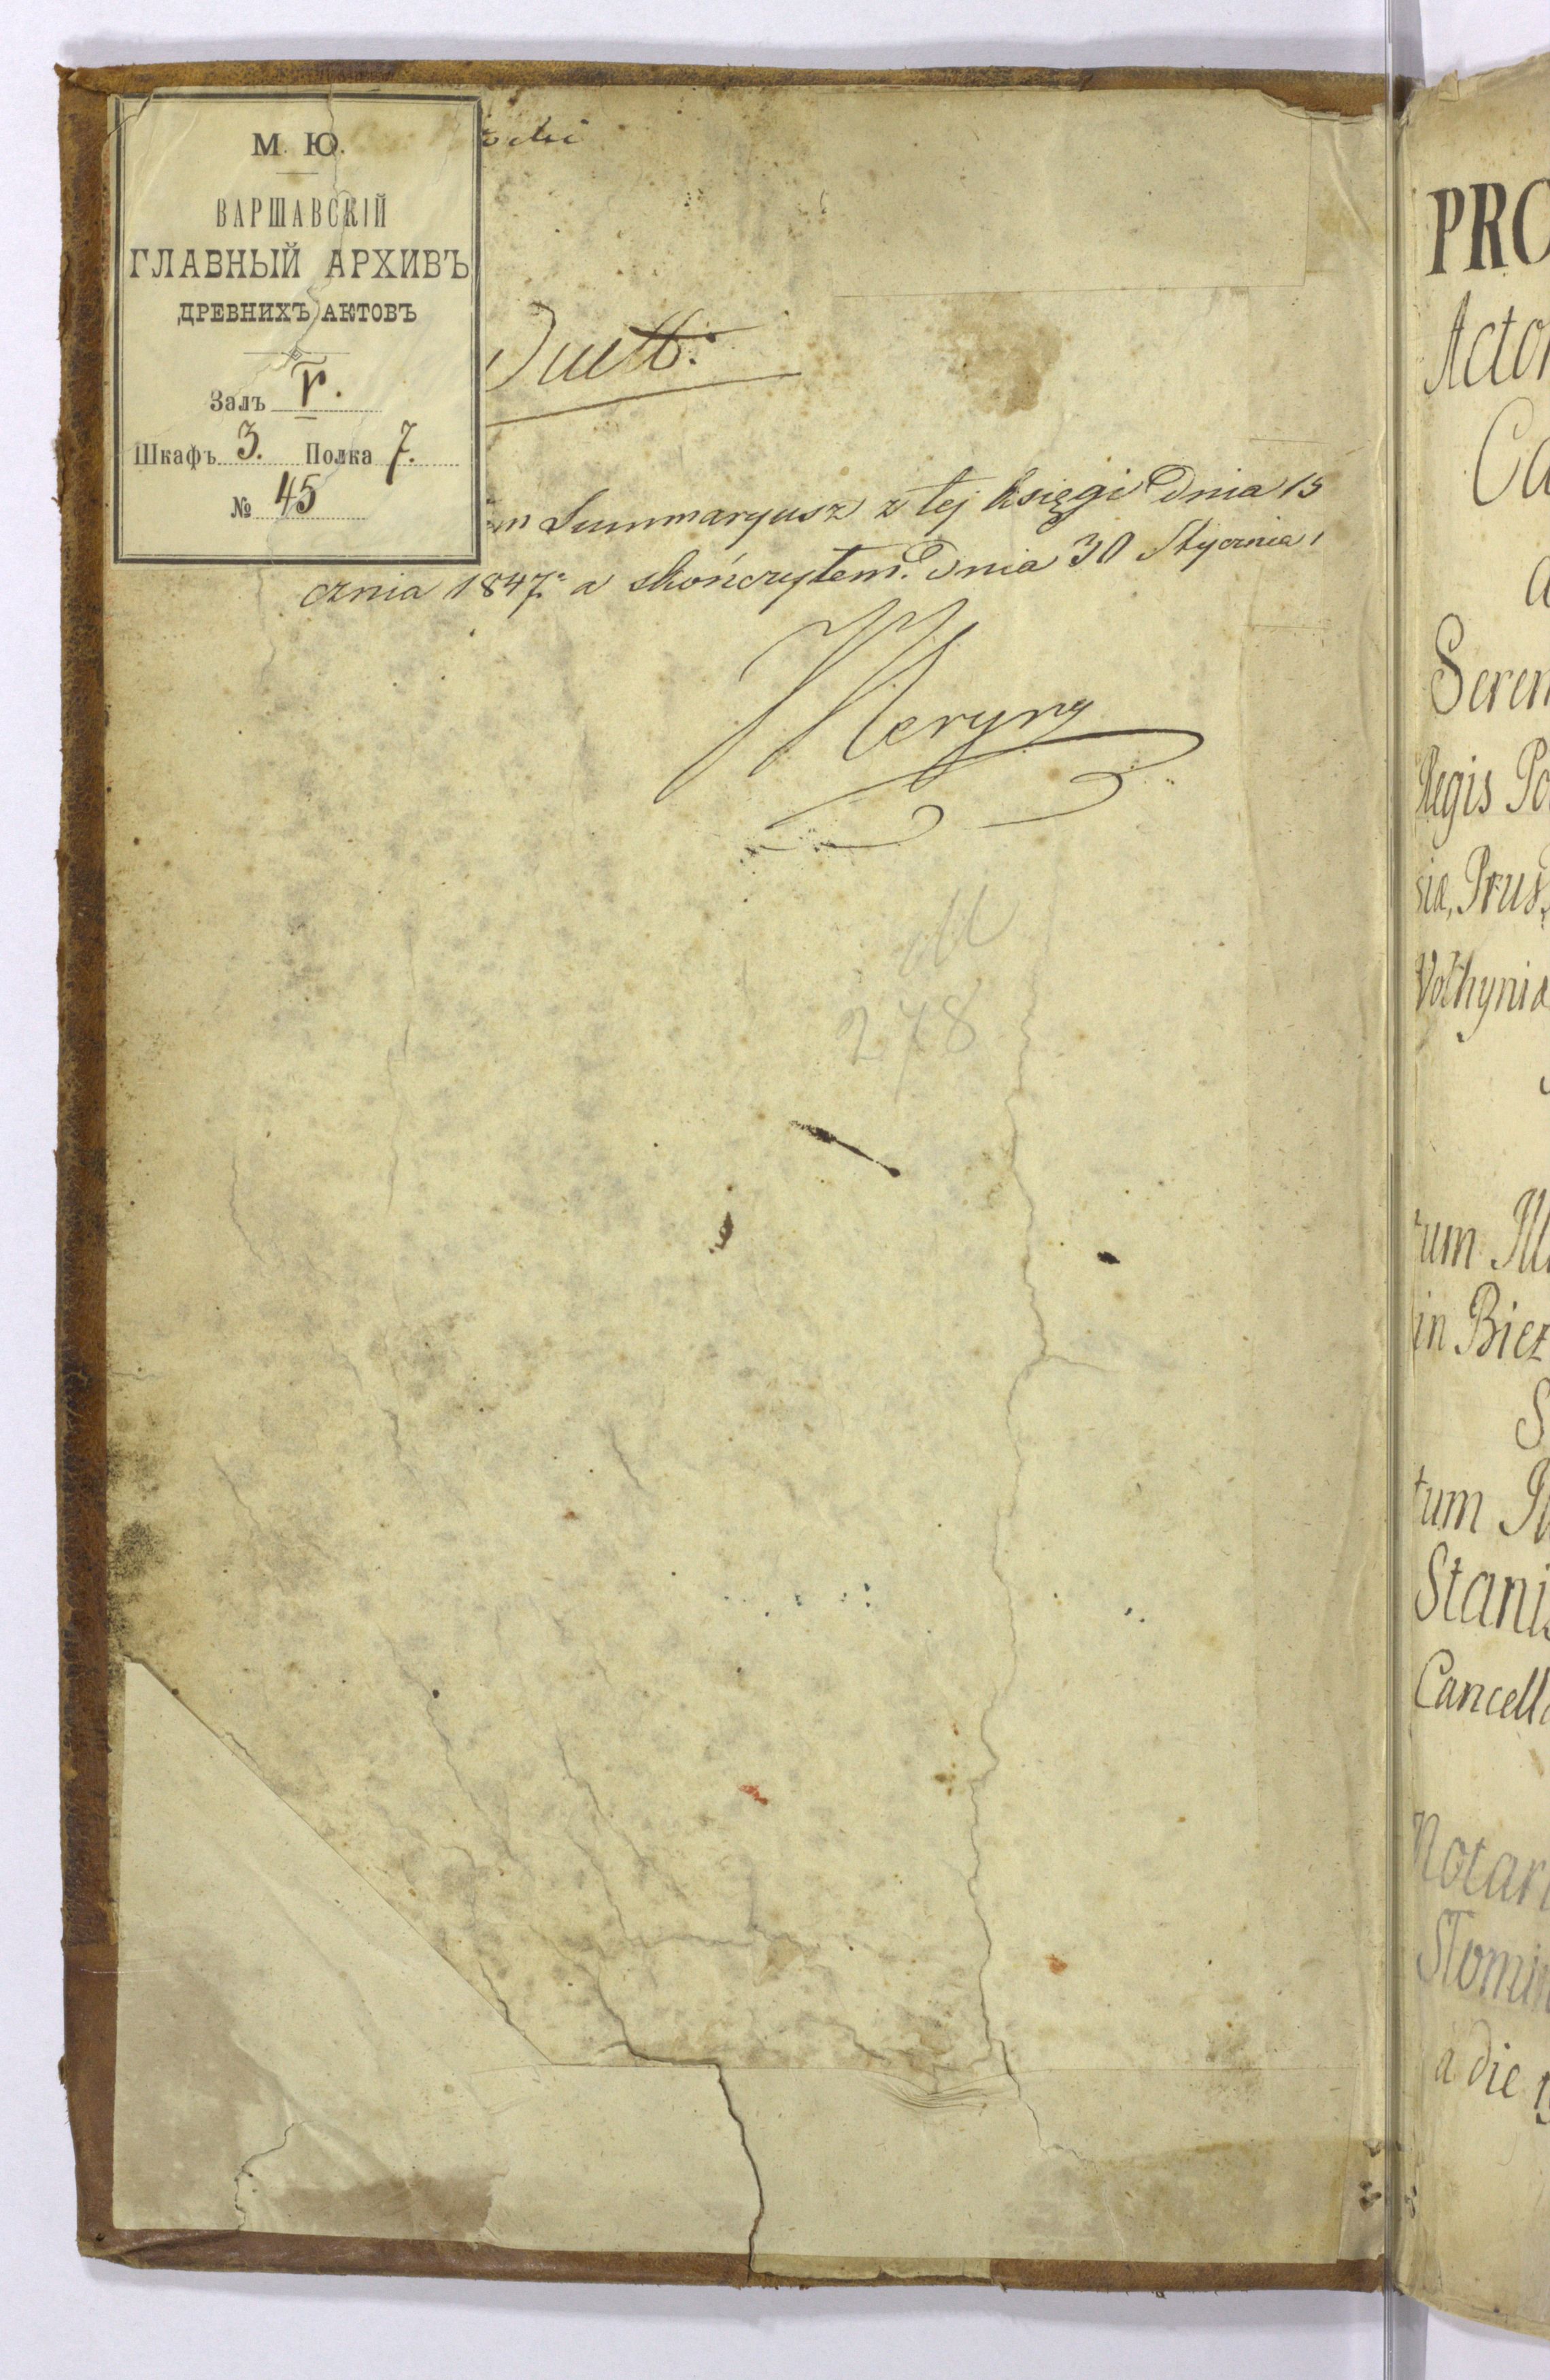 М. Ю.
ВАРШАВСКІЙ
ГЛАВНЫЙ АРХИВЪ
ДРЕВНИХЪ АКТОВЪ
Залъ V.
Шкафъ 3. Полка 7.
№ 45
m Summaryusz z tej księgi Dnia 15
cznia 1847. a skończyłem. Dnia 30 Stycznia
Heryng
278
PRO
Actor
Ca
a
Seren
Regis Po
sia, Prus
Volhynia
rum Ill
in Biez
S
tum Il
Stanis
Cancella
Notari
Slomin
a die 1